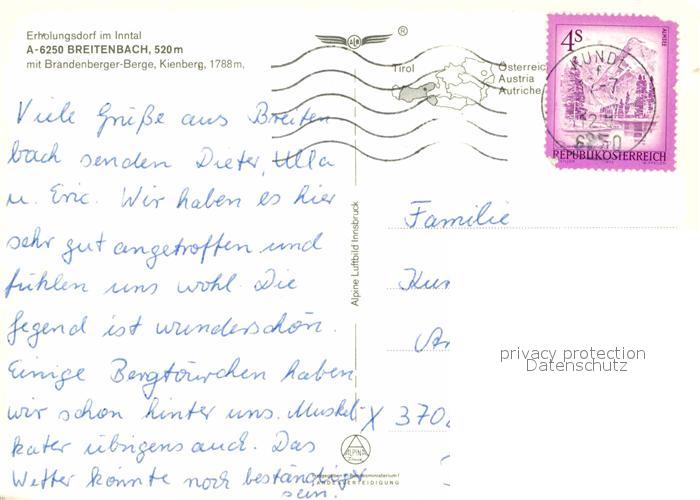 Erholungsdorf im Inntal
A-6250 BREITENBACH, 520 m
mit Brandenberger-Berge, Kienberg, 1788 m,
®
Tirol
Österreic
Austria
Autriche
4s
ALMSEE
KUNDL
6250
REPUBLIK ÖSTERREICH
Viele Grüße aus Breiten
bach senden Dieter, Ulla
u. Eric. Wir haben es hier
sehr gut angetroffen und
fühlen uns wohl. Die
Gegend ist wunderschön.
Einige Bergtourchen haben
wir schon hinter uns. Muskel-
kater übrigens auch. Das
Wetter könnte noch beständiger
sein!
Alpine Luftbild Innsbruck
Familie
X 370
privacy protection
Datenschutz
ALPINA
LANDESVERTEIDIGUNG